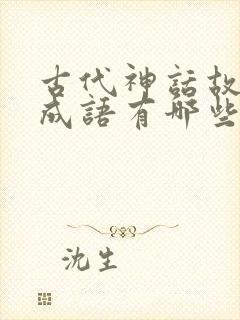 古代神話故
成語有哪些
沈生